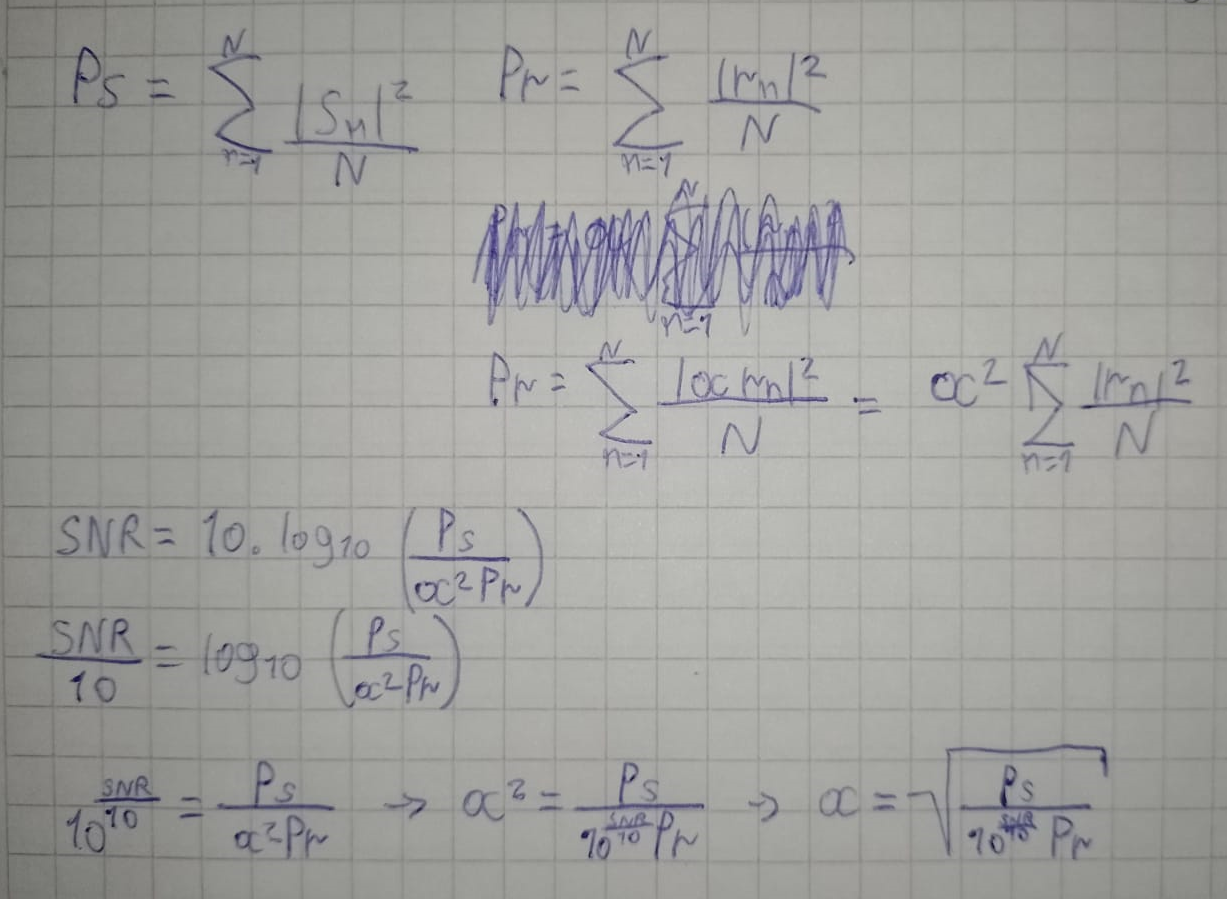 P_S = \sum_{n=1}^{N} \frac{|S_n|^2}{N}    P_r = \sum_{n=1}^{N} \frac{|r_n|^2}{N}
P_r = \sum_{n=1}^{N} \frac{|α r_n|^2}{N} = α^2 \sum_{n=1}^{N} \frac{|r_n|^2}{N}
SNR = 10 . log_{10} ( \frac{P_S}{α^2 P_r} )
\frac{SNR}{10} = log_{10} ( \frac{P_S}{α^2 P_r} )
10^{\frac{SNR}{10}} = \frac{P_S}{α^2 P_r} → α^2 = \frac{P_S}{10^{\frac{SNR}{10}} P_r} → α = \sqrt{\frac{P_S}{10^{\frac{SNR}{10}} P_r}}